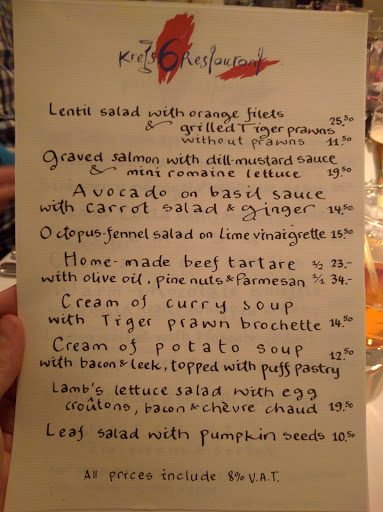 Kreis 6 Restaurant
Lentil salad with orange filets
& grilled Tiger prawns 25.50
without prawns 11.50
Graved salmon with dill-mustard sauce
& mini romaine lettuce 19.50
Avocado on basil sauce
with carrot salad & ginger 14.50
Octopus-fennel salad on lime vinaigrette 15.50
Home-made beef tartare 1/2 23.-
with olive oil, pine nuts & Parmesan 1/1 34.-
Cream of curry soup
with Tiger prawn brochette 14.50
Cream of potato soup 12.50
with bacon & leek, topped with puff pastry
Lamb's lettuce salad with egg
croûtons, bacon & chèvre chaud 19.50
Leaf salad with pumpkin seeds 10.50
All prices include 8% V.A.T.